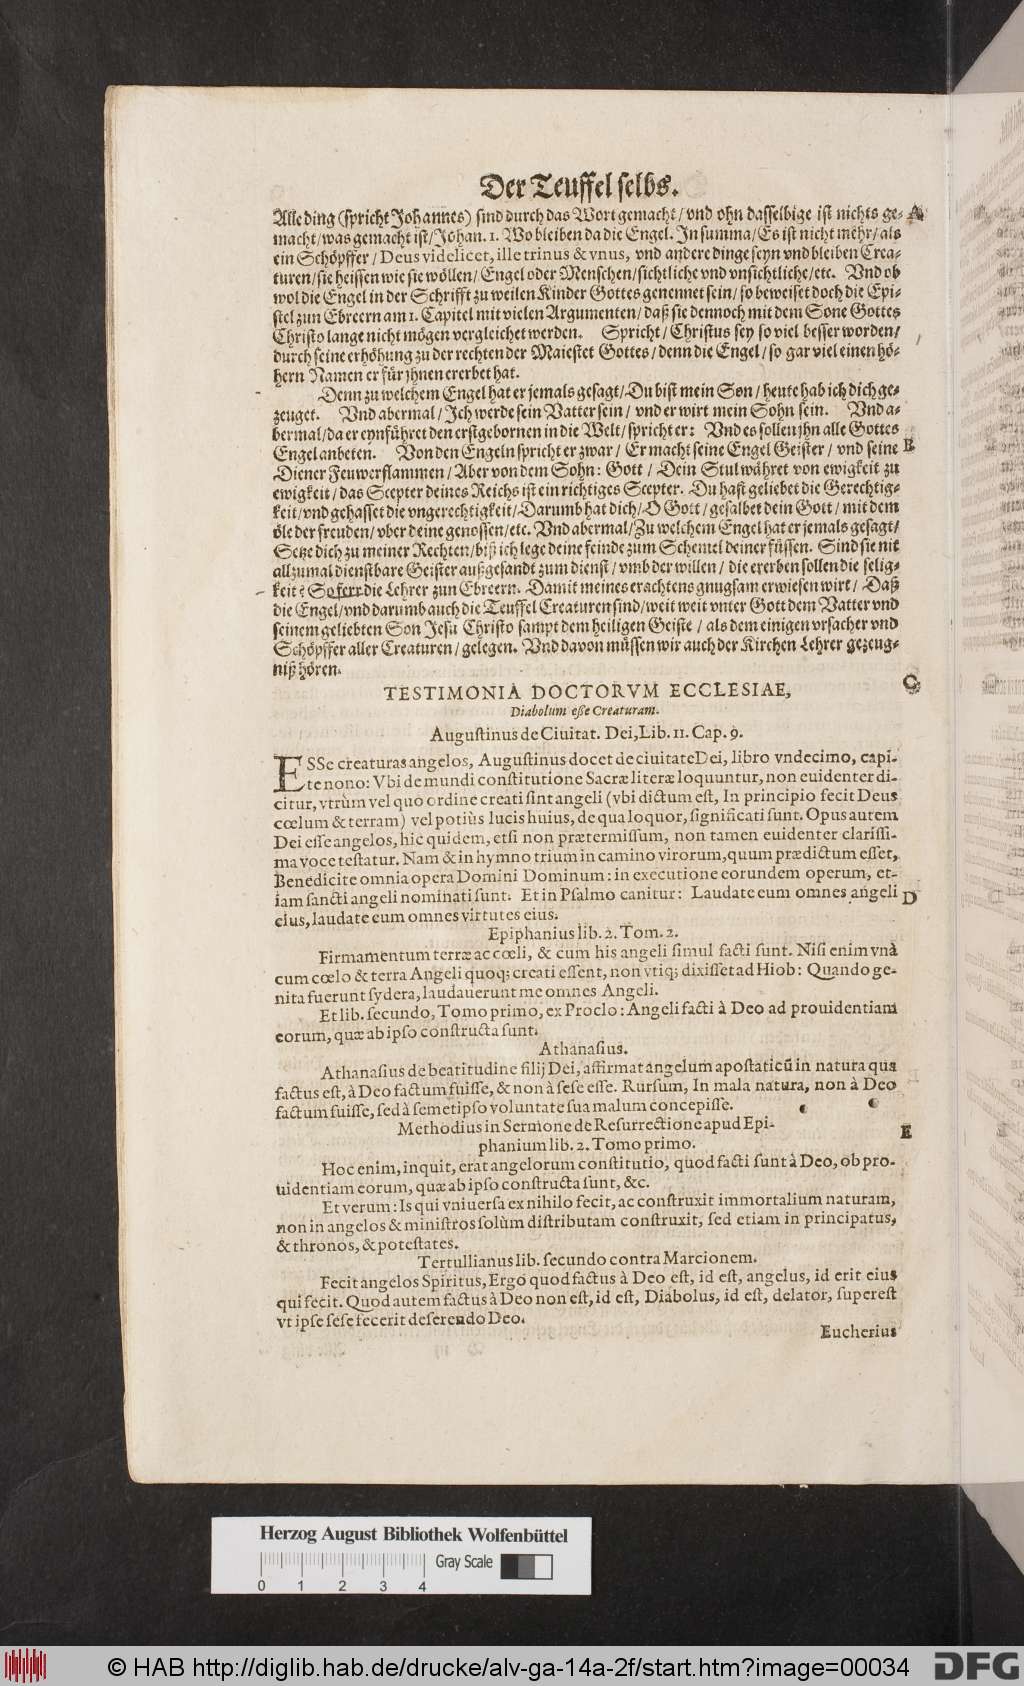 Der Teuffel selbs.
Alle ding (spricht Johannes) sind durch das Wort gemacht/ vnd ohn dasselbige ist nichts ge- A
macht/ was gemacht ist/ Johan. 1. Wo bleiben da die Engel. In summa/ Es ist nicht mehr/ als
ein Schöpffer/ Deus videlicet, ille trinus & vnus, vnd andere dinge seyn vnd bleiben Crea-
turen/ sie heissen wie sie wöllen/ Engel oder Menschen/ sichtliche vnd vnsichtliche/ etc. Vnd ob
wol die Engel in der Schrifft zu weilen Kinder Gottes genennet sein/ so beweiset doch die Epi-
stel zun Ebreern am 1. Capitel mit vielen Argumenten/ daß sie dennoch mit dem Sone Gottes
Christo lange nicht mögen vergleichet werden. Spricht/ Christus sey so viel besser worden/
durch seine erhöhung zu der rechten der Maiestet Gottes/ denn die Engel/ so gar viel einen hö-
hern Namen er für jhnen ererbet hat.
Denn zu welchem Engel hat er jemals gesagt/ Du bist mein Son/ heute hab ich dich ge-
zeuget. Vnd abermal/ Ich werde sein Vatter sein/ vnd er wirt mein Sohn sein. Vnd a-
bermal/ da er eynführet den erstgebornen in die Welt/ spricht er: Vnd es sollen jhn alle Gottes
Engel anbeten. Von den Engeln spricht er zwar/ Er macht seine Engel Geister/ vnd seine B
Diener Feuwerflammen/ Aber von dem Sohn: Gott/ Dein Stul währet von ewigkeit zu
ewigkeit/ das Scepter deines Reichs ist ein richtiges Scepter. Du hast geliebet die Gerechtig-
keit/ vnd gehasset die vngerechtigkeit/ Darumb hat dich/ O Gott/ gesalbet dein Gott/ mit dem
öle der freuden/ vber deine genossen/ etc. Vnd abermal/ Zu welchem Engel hat er jemals gesagt/
Setze dich zu meiner Rechten/ biß ich lege deine feinde zum Schemel deiner füssen. Sind sie nit
allzumal dienstbare Geister außgesandt zum dienst/ vmb der willen/ die ererben sollen die selig-
keit? So ferr die Lehrer zun Ebreern. Damit meines erachtens gnugsam erwiesen wirt/ Daß
die Engel/ vnd darumb auch die Teuffel Creaturen sind/ weit weit vnter Gott dem Vatter vnd
seinem geliebten Son Jesu Christo sampt dem heiligen Geiste/ als dem einigen vrsacher vnd
Schöpffer aller Creaturen/ gelegen. Vnd davon müssen wir auch der Kirchen Lehrer gezeug-
niß hören.
TESTIMONIA DOCTORVM ECCLESIAE, C
Diabolum eße Creaturam.
Augustinus de Ciuitat. Dei, Lib. 11. Cap. 9.
ESSe creaturas angelos, Augustinus docet de ciuitate Dei, libro vndecimo, capi-
te nono: Vbi de mundi constitutione Sacræ literæ loquuntur, non euidenter di-
citur, vtrùm vel quo ordine creati sint angeli (vbi dictum est, In principio fecit Deus
cœlum & terram) vel potiùs lucis huius, de qua loquor, significati sunt. Opus autem
Dei esse angelos, hic quidem, etsi non prætermissum, non tamen euidenter clarissi-
ma voce testatur. Nam & in hymno trium in camino virorum, quum prædictum esset,
Benedicite omnia opera Domini Dominum: in executione eorundem operum, et-
iam sancti angeli nominati sunt. Et in Psalmo canitur: Laudate eum omnes angeli D
eius, laudate eum omnes virtutes eius.
Epiphanius lib. 2. Tom. 2.
Firmamentum terræ ac cœli, & cum his angeli simul facti sunt. Nisi enim vnà
cum cœlo & terra Angeli quoq; creati essent, non vtiq; dixisset ad Hiob: Quando ge-
nita fuerunt sydera, laudauerunt me omnes Angeli.
Et lib. secundo, Tomo primo, ex Proclo: Angeli facti à Deo ad prouidentiam
eorum, quæ ab ipso constructa sunt.
Athanasius.
Athanasius de beatitudine filij Dei, affirmat angelum apostaticũ in natura qua
factus est, à Deo factum fuisse, & non à sese esse. Rursum, In mala natura, non à Deo
factum fuisse, sed à semetipso voluntate sua malum concepisse.
Methodius in Sermone de Resurrectione apud Epi- E
phanium lib. 2. Tomo primo.
Hoc enim, inquit, erat angelorum constitutio, quod facti sunt à Deo, ob pro-
uidentiam eorum, quæ ab ipso constructa sunt, &c.
Et verum: Is qui vniuersa ex nihilo fecit, ac construxit immortalium naturam,
non in angelos & ministros solùm distributam construxit, sed etiam in principatus,
& thronos, & potestates.
Tertullianus lib. secundo contra Marcionem.
Fecit angelos Spiritus, Ergo quod factus à Deo est, id est, angelus, id erit eius
qui fecit. Quod autem factus à Deo non est, id est, Diabolus, id est, delator, superest
vt ipse sese fecerit deferendo Deo.
Eucherius
Herzog August Bibliothek Wolfenbüttel
Gray Scale
0 1 2 3 4
© HAB http://diglib.hab.de/drucke/alv-ga-14a-2f/start.htm?image=00034
DFG